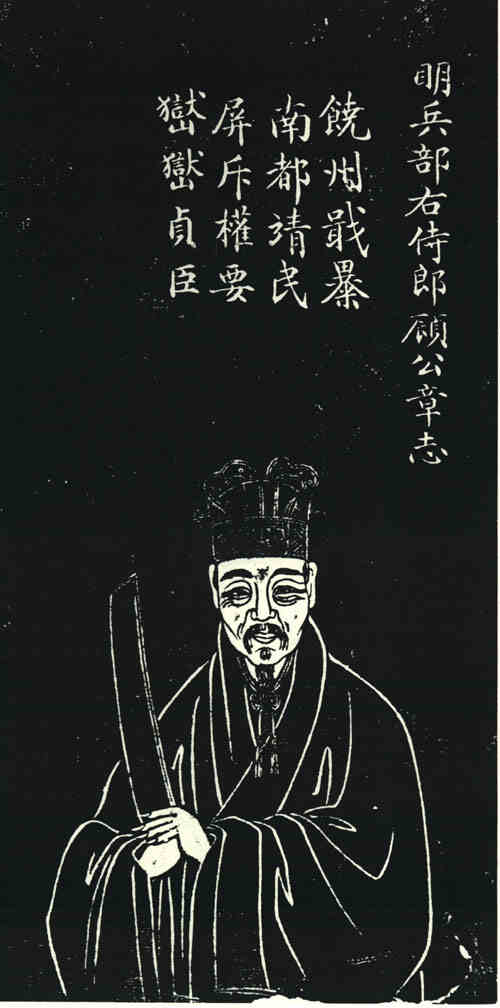 明兵部右侍郎顧公章志
饒州戢暴
南都靖民
屏斥權要
嶽嶽貞臣